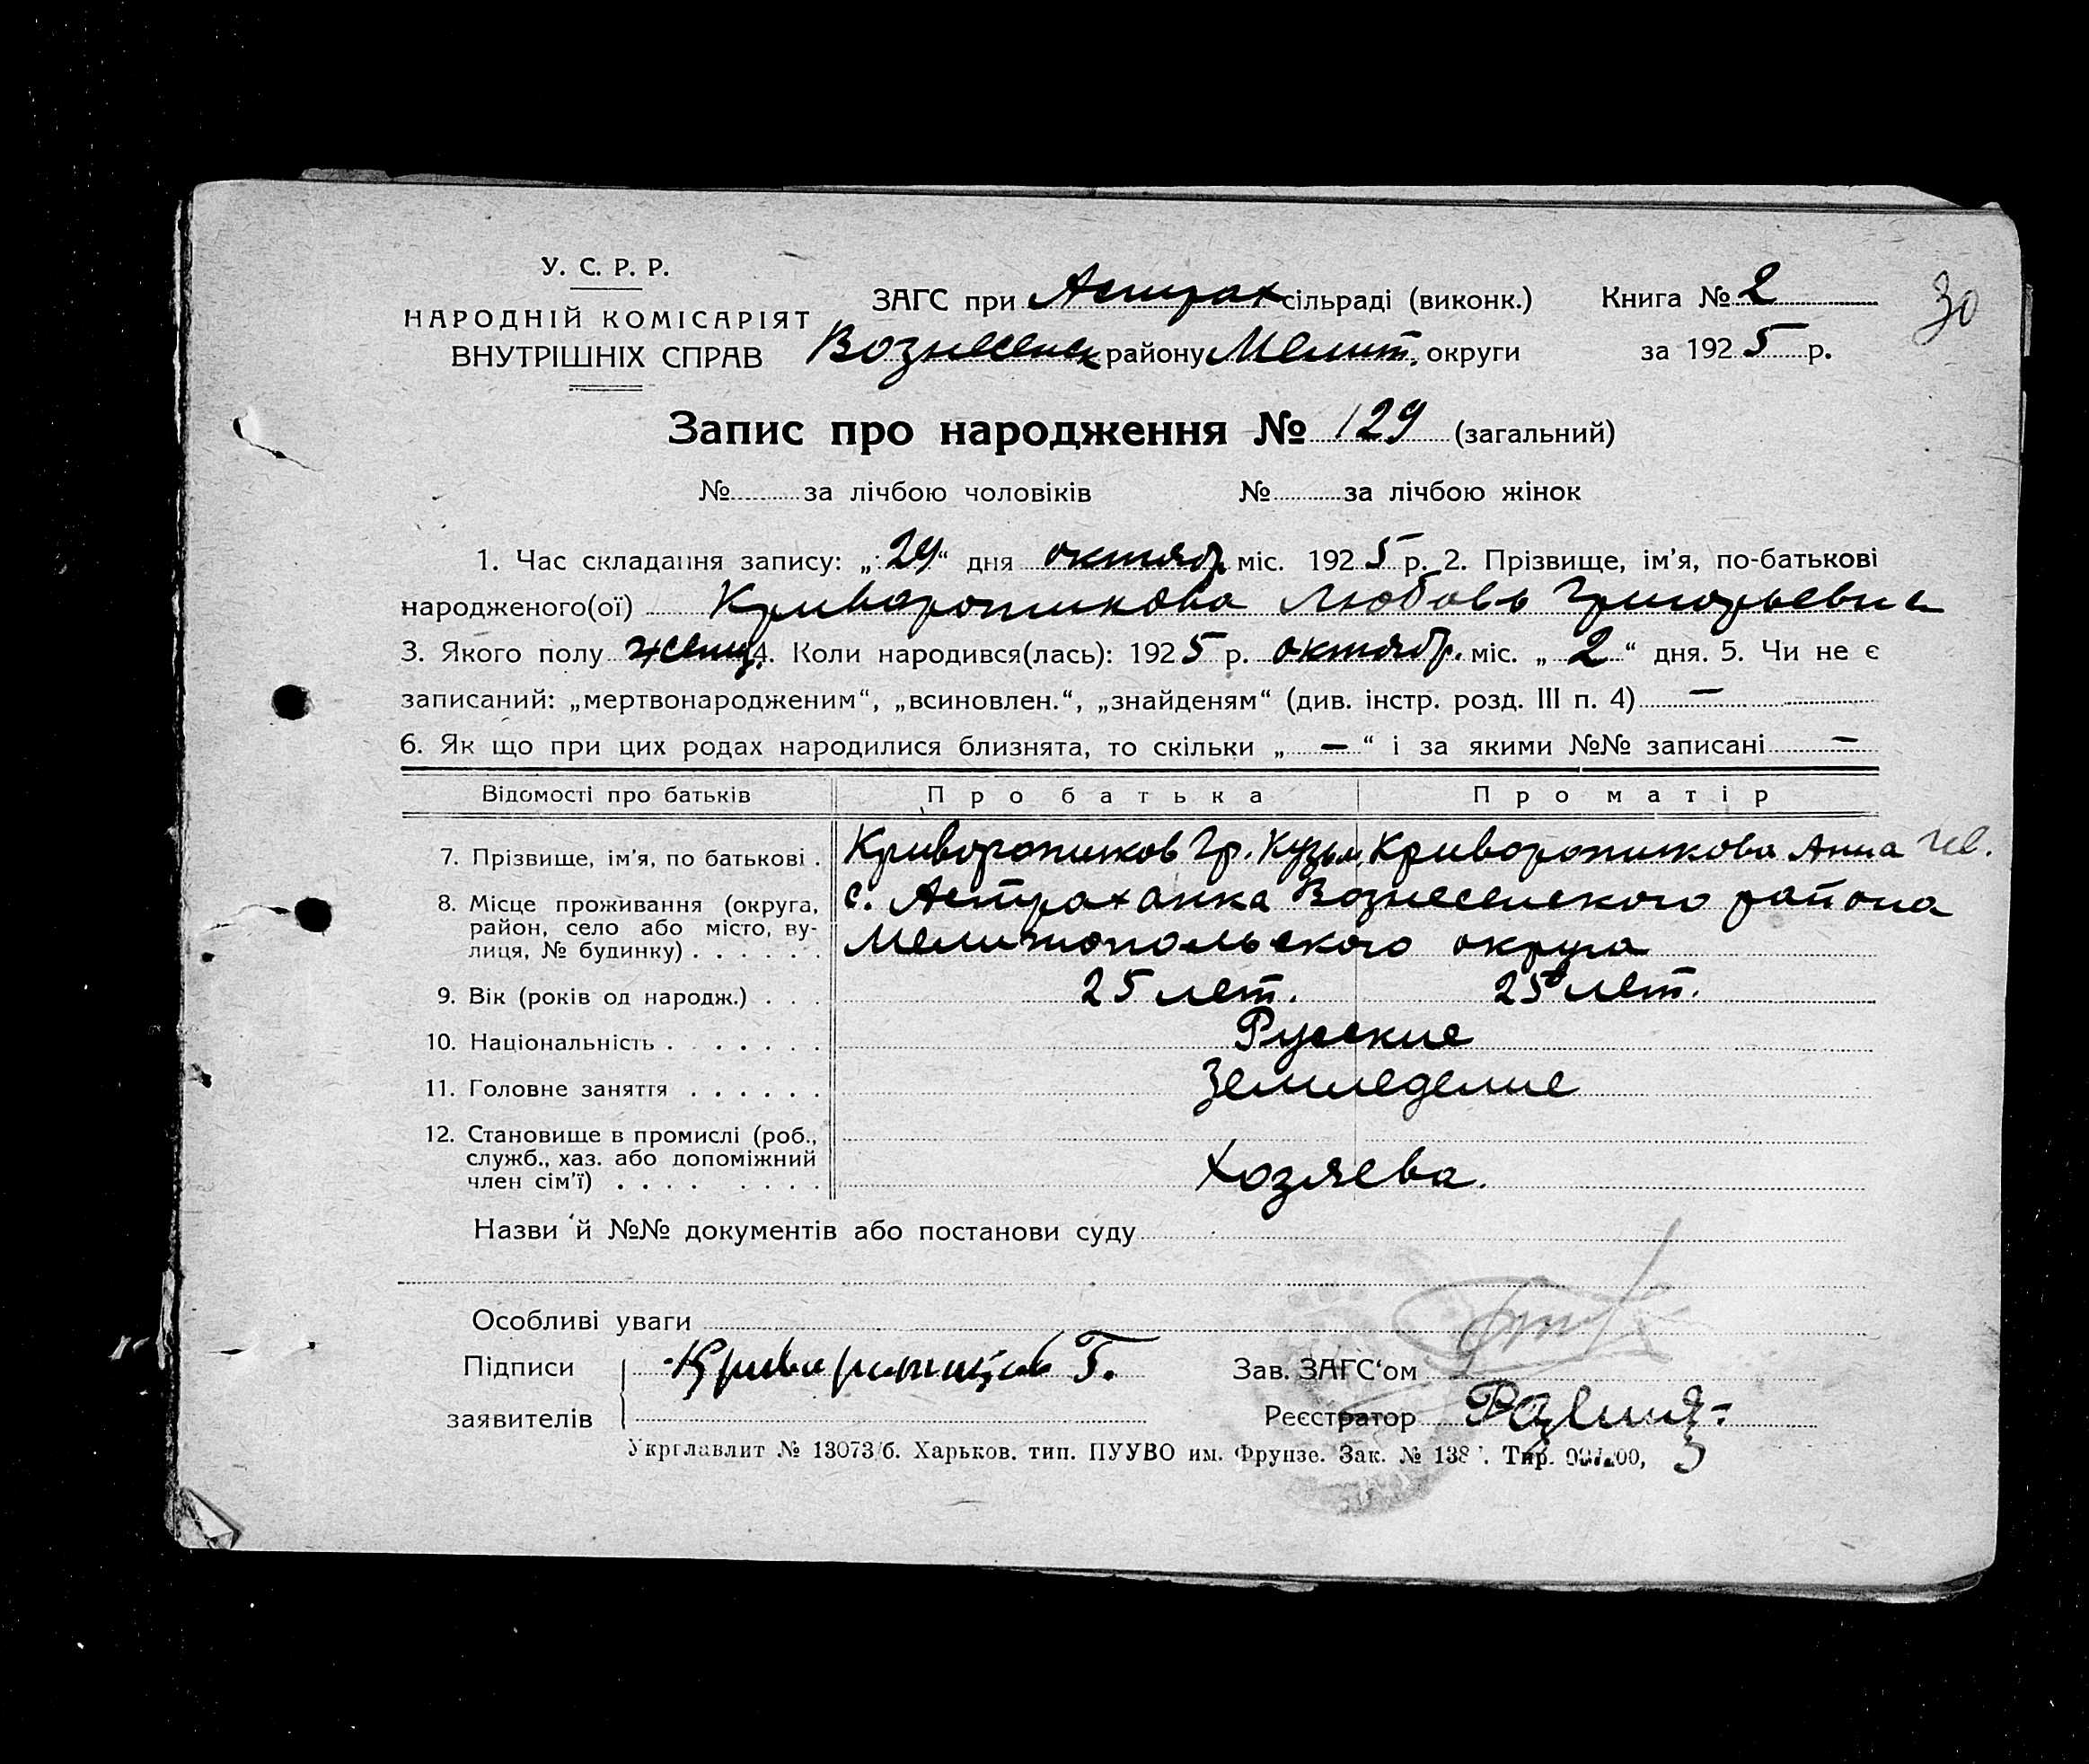 У. С. Р. Р.
НАРОДНІЙ КОМІСАРІЯТ
ВНУТРІШНІХ СПРАВ
ЗАГС при Астрах сільраді (виконк.) Книга № 2
30
Вознесенск району Мелит. округи за 1925 р.
Запис про народження № 129 (загальний)
№ за лічбою чоловіків № за лічбою жінок
1. Час складання запису: „29“ дня октябр. міс. 1925 р. 2. Прізвище, ім'я, по-батькові
народженого(ої) Криворотикова Любовь Григорьевна
3. Якого полу женщ. 4. Коли народився(лась): 1925 р. октябр. міс. „2“ дня. 5. Чи не є
записаний: „мертвонародженим“, „всиновлен.“, „знайденям“ (див. інстр. розд. III п. 4) —
6. Як що при цих родах народилися близнята, то скільки „—“ і за якими №№ записані —
Відомості про батьків Про батька Про матір
7. Прізвище, ім'я, по батькові . Криворотиков Гр. Кузьм. Криворотикова Анна
8. Місце проживання (округа, с. Астраханка Вознесенского района
район, село або місто, ву-
лиця, № будинку) . . . . . . Мелитопольского округа
9. Вік (років од народж.) . . . 25 лет. 25 лет.
10. Національність . . . . . . . Русские
11. Головне заняття . . . . . . Земледелие
12. Становище в промислі (роб.,
служб., хаз. або допоміжний
член сім'ї) . . . . . . . . Хозяева.
Назви й №№ документів або постанови суду
Особливі уваги
Підписи Криворотиков Г. Зав. ЗАГС'ом
заявителів Реєстратор
Укрглавлит № 13073/б. Харьков. тип. ПУУВО им. Фрунзе. Зак. № 138 . Тир.